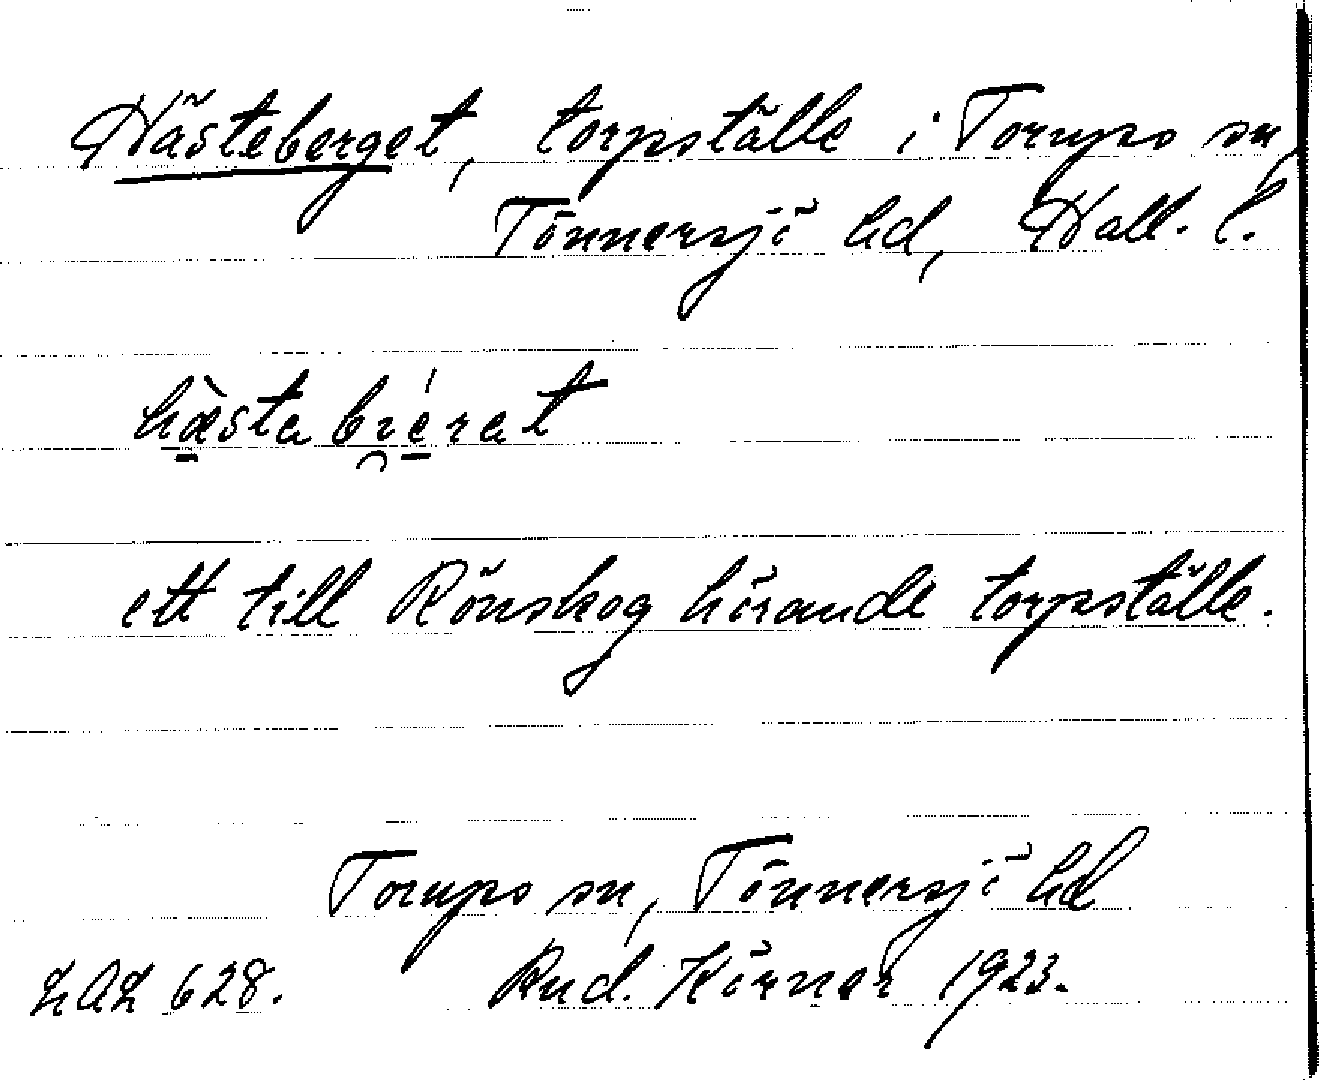 Hästeberget, torpställe i Torups sn,
Tönnersjö hd, Hall. l.
hæ̀sta bi̯érat
ett till Rönskog hörande torpställe.
Torups sn, Tönnersjö hd
LAL 628. Rud. Körner 1923.